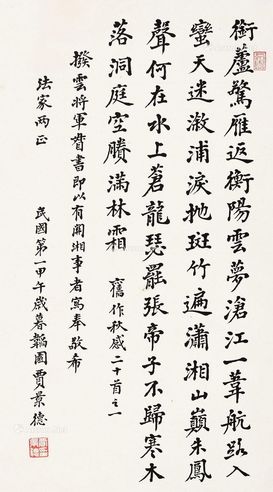 銜蘆驚雁返衡陽雲夢滄江一葦航路入
蠻天迷漵浦淚拋斑竹遍瀟湘山巔朱鳳
聲何在水上蒼龍瑟罷張帝子不歸寒木
落洞庭空賸滿林霜 舊作秋感二十首之一
揆雲將軍督書即以有關湘事者寫奉敬希
法家兩正
民國第一甲午歲暮韜園賈景德